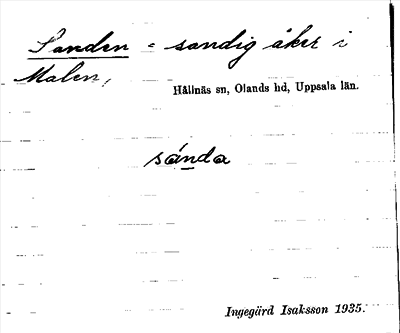 Sanden = sandig åker i
Malen,
Hållnäs sn, Olands hd, Uppsala län.
sánda
Ingegärd Isaksson 1935.